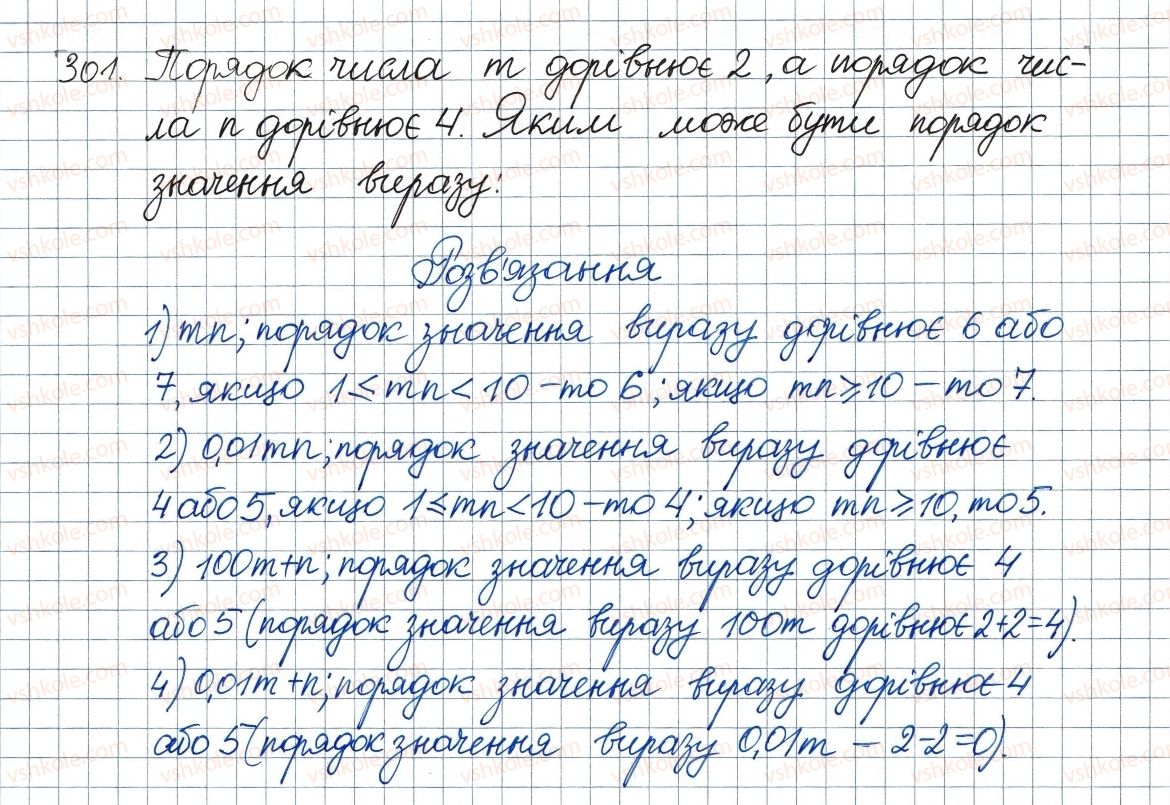 301. Порядок числа m дорівнює 2, а порядок чис-
ла n дорівнює 4. Яким може бути порядок
значення виразу:
Розв'язання
1) mn; порядок значення виразу дорівнює 6 або
7, якщо 1 ≤ mn < 10 – то 6; якщо mn ≥ 10 – то 7.
2) 0,01mn; порядок значення виразу дорівнює
4 або 5, якщо 1 ≤ mn < 10 – то 4; якщо mn ≥ 10, то 5.
3) 100m+n; порядок значення виразу дорівнює 4
або 5 (порядок значення виразу 100m дорівнює 2+2=4).
4) 0,01m+n; порядок значення виразу дорівнює 4
або 5 (порядок значення виразу 0,01m – 2-2=0).
vshkole.com